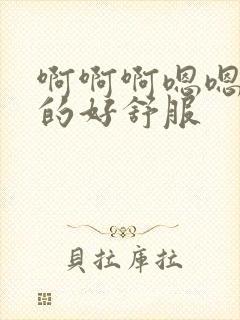 啊啊啊嗯嗯
的好舒服
貝拉庫拉